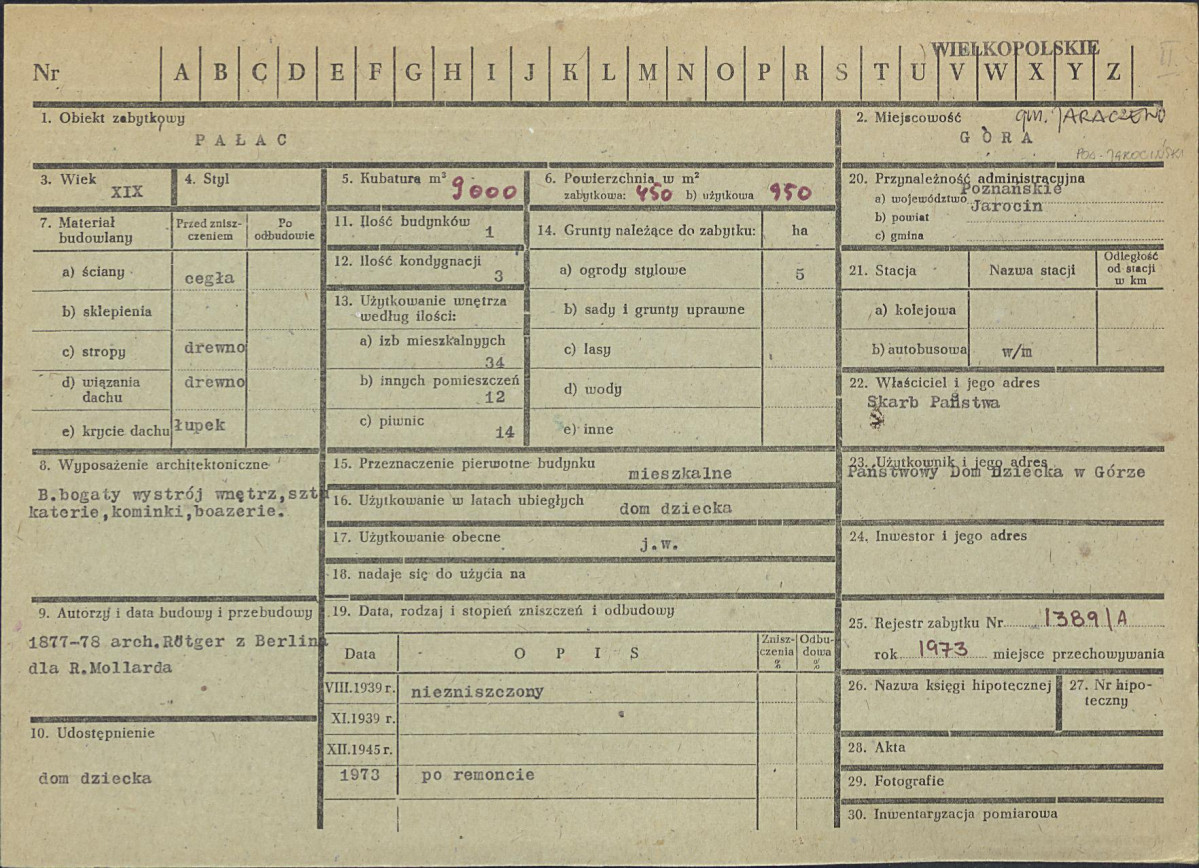 WIELKOPOLSKIE
II.
Nr A B C D E F G H I J K L M N O P R S T U V W X Y Z
1. Obiekt zabytkowy
PAŁAC
2. Miejscowość gm. JARACZEWO
GÓRA
POW. JAROCIŃSKI
3. Wiek
XIX
4. Styl
5. Kubatura m³ 9000
6. Powierzchnia w m²
zabytkowa: 450 b) użytkowa 950
20. Przynależność administracyjna
a) województwo Poznańskie
b) powiat Jarocin
c) gmina
7. Materiał budowlany
Przed zniszczeniem
Po odbudowie
a) ściany cegła
b) sklepienia
c) stropy drewno
d) wiązania dachu drewno
e) krycie dachu łupek
11. Ilość budynków
1
12. Ilość kondygnacji
3
13. Użytkowanie wnętrza
według ilości:
a) izb mieszkalnyych
34
b) innych pomieszczeń
12
c) piwnic
14
14. Grunty należące do zabytku: ha
a) ogrody stylowe 5
b) sady i grunty uprawne
c) lasy
d) wody
e) inne
21. Stacja Nazwa stacji
Odległość
od stacji
w km
a) kolejowa
b) autobusowa w/m
22. Właściciel i jego adres
Skarb Państwa
8. Wyposażenie architektoniczne
B.bogaty wystrój wnętrz,sztu
katerie,kominki,boazerie.
15. Przeznaczenie pierwotne budynku
mieszkalne
16. Użytkowanie w latach ubiegłych
dom dziecka
17. Użytkowanie obecne
j.w.
18. nadaje się do użycia na
23. Użytkownik i jego adres
Państwowy Dom Dziecka w Górze
24. Inwestor i jego adres
9. Autorzy i data budowy i przebudowy
1877-78 arch.Rötger z Berlina
dla R.Mollarda
10. Udostępnienie
dom dziecka
19. Data, rodzaj i stopień zniszczeń i odbudowy
Data OPIS
Zniszczenia %
Odbudowa %
VIII.1939 r. niezniszczony
XI.1939 r.
XII.1945 r.
1973 po remoncie
25. Rejestr zabytku Nr 1389/A
rok 1973 miejsce przechowywania
26. Nazwa księgi hipotecznej
27. Nr hipoteczny
28. Akta
29. Fotografie
30. Inwentaryzacja pomiarowa